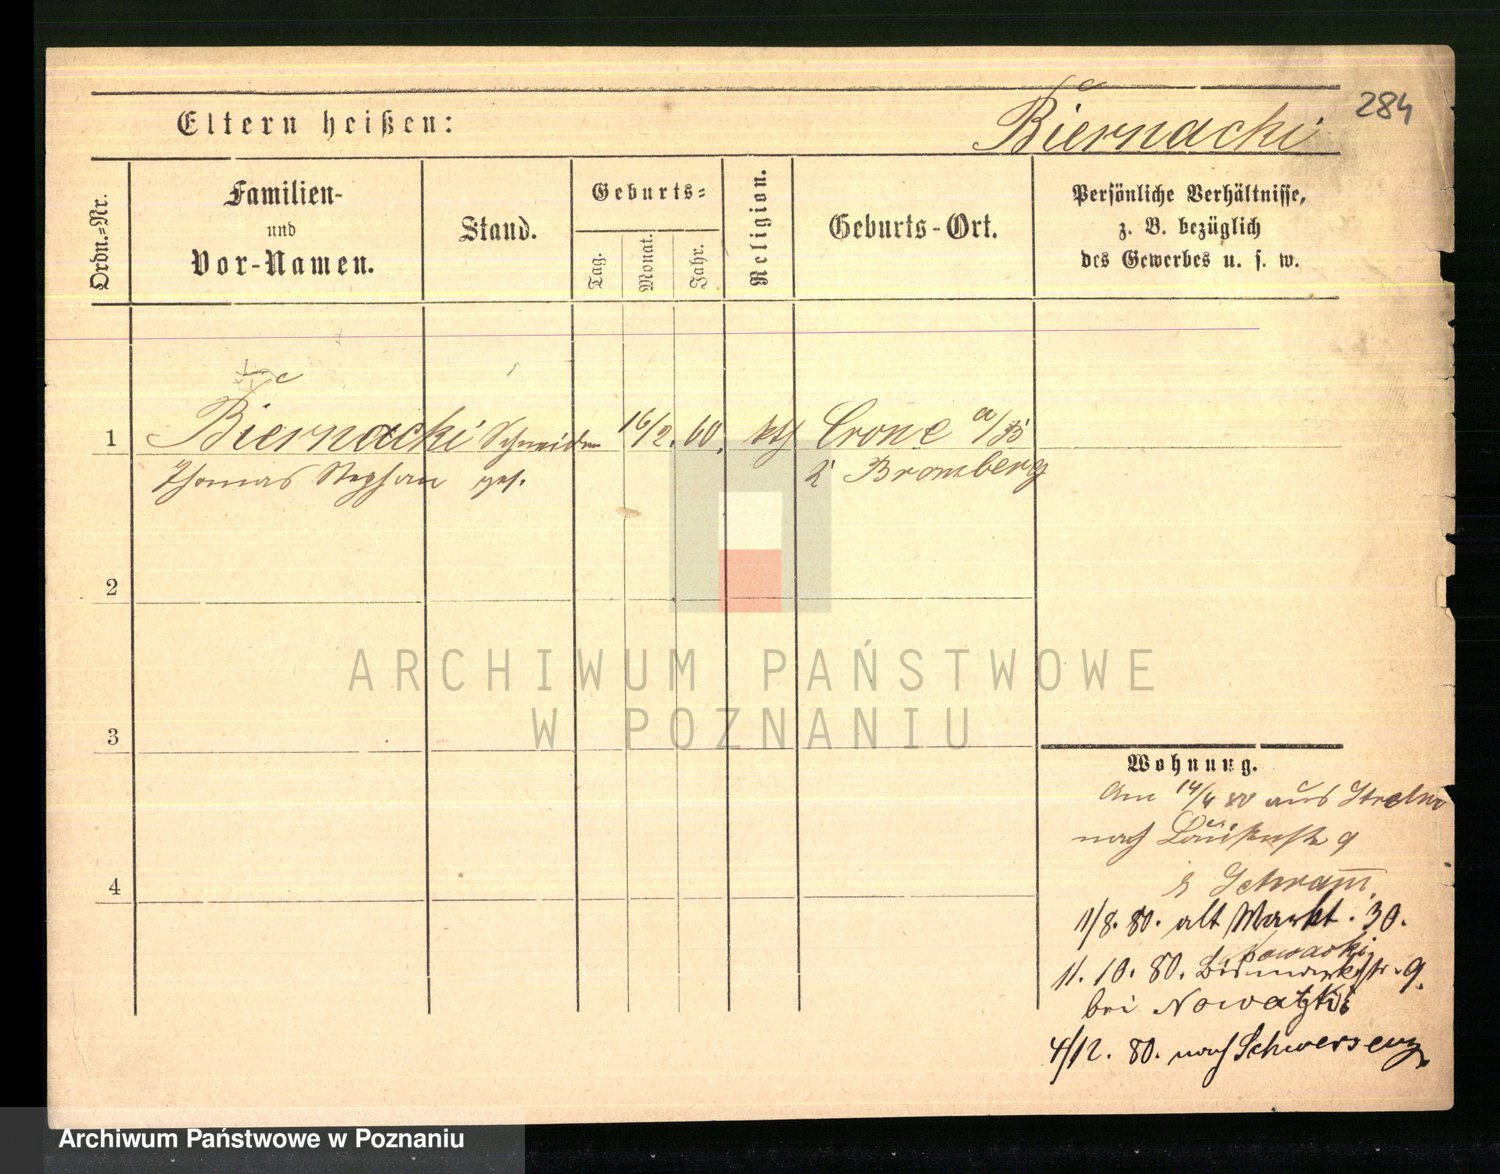 284
Eltern heißen:
Biernacki
Ordn.=Nr.
Familien-
und
Vor-Namen.
Stand.
Geburts=
Tag.
Monat.
Jahr.
Religion.
Geburts-Ort.
Persönliche Verhältnisse,
z. B. bezüglich
des Gewerbes u. s. w.
1 Biernacki Schneider 16/2. 60. kth Crone a/B
Thomas Stephan ges. Bromberg
2
3
4
ARCHIWUM PAŃSTWOWE
W POZNANIU
Wohnung.
Am 14/4 80 aus Strelno
nach 9
Schramm.
11/8. 80. alt Markt. 30.
Nowacki
11. 10. 80. Bismarckstr. 9.
bei Nowatzki
4/12. 80. nach Schwersenz.
Archiwum Państwowe w Poznaniu